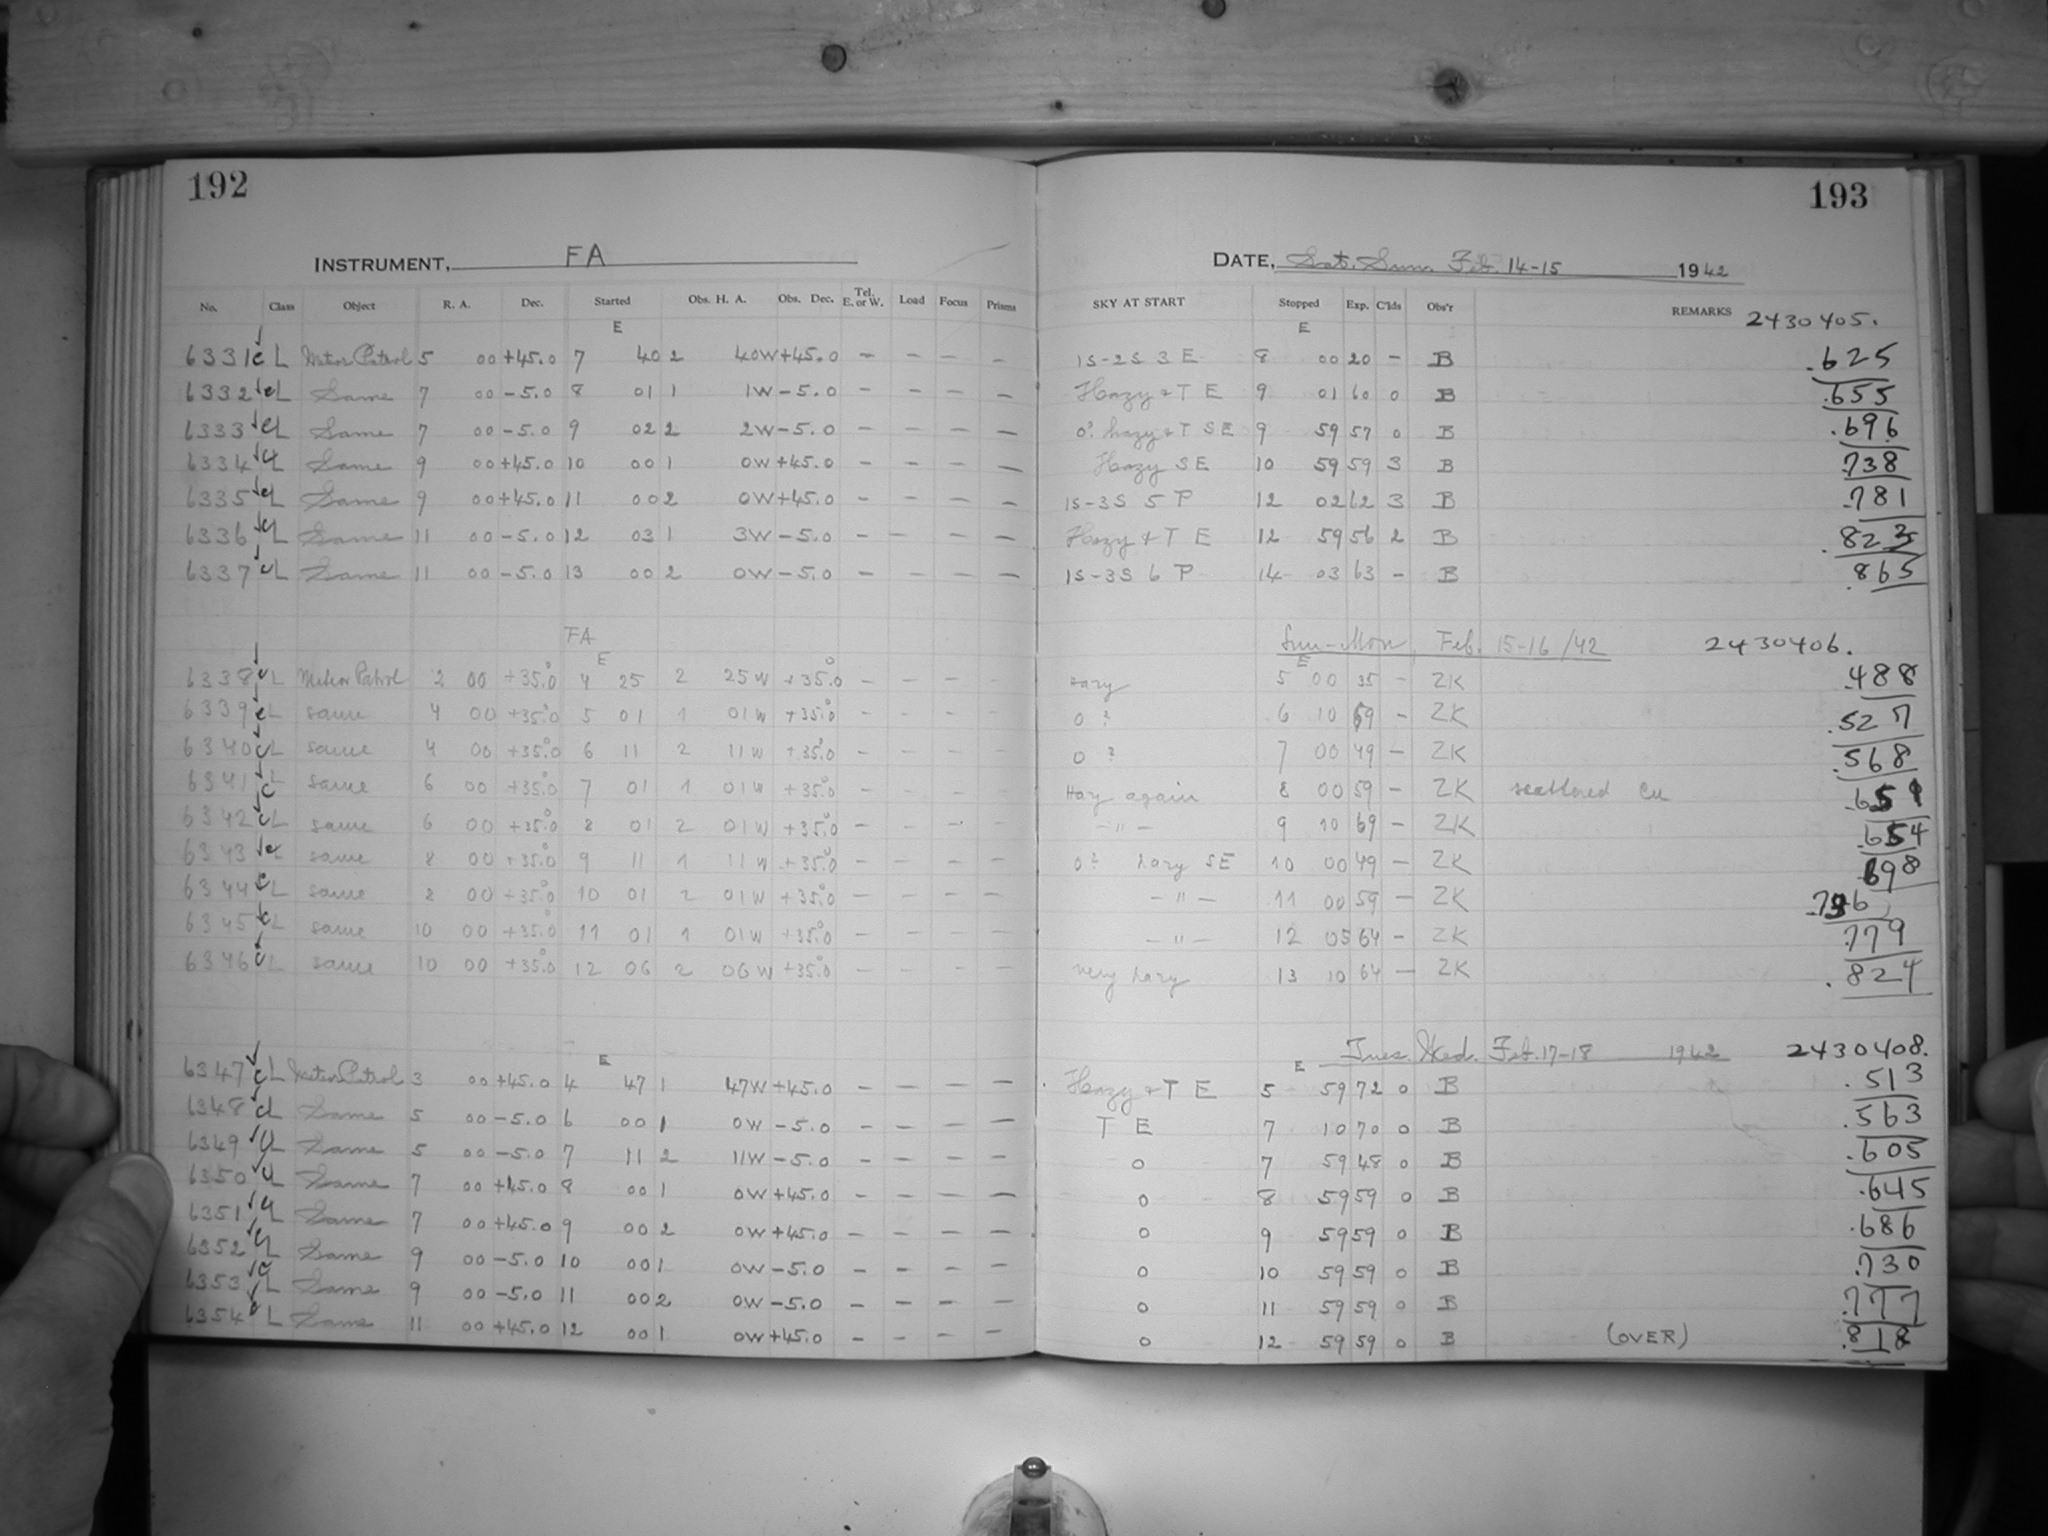 192
193
INSTRUMENT, FA
DATE, Sat. Sun. Feb. 14-15 1942
No. Class Object R. A. Dec. Started Obs. H. A. Obs. Dec. Tel. E. or W. Load Focus Prisms SKY AT START Stopped Exp. C'lds Obs'r REMARKS 2430405.
E E
6331 c L Meteor Patrol 5 00 +45.0 7 40 2 40W +45.0 - - - - 1S-2S 3 E 8 00 20 - B .625
6332 c L Same 7 00 -5.0 8 01 1 1W -5.0 - - - - Hazy & T E 9 01 60 0 B .655
6333 c L Same 7 00 -5.0 9 02 2 2W -5.0 - - - - 0? hazy & T SE 9 59 57 0 B .696
6334 c L Same 9 00 +45.0 10 00 1 0W +45.0 - - - - Hazy SE 10 59 59 3 B .738
6335 c L Same 9 00 +45.0 11 00 2 0W +45.0 - - - - 1S-3S 5 P 12 02 62 3 B .781
6336 c L Same 11 00 -5.0 12 03 1 3W -5.0 - - - - Hazy & T E 12 59 56 2 B .823
6337 c L Same 11 00 -5.0 13 00 2 0W -5.0 - - - - 1S-3S 6 P 14 03 63 - B .865
FA Sun-Mon Feb. 15-16/42 2430406.
E E
6338 c L Meteor Patrol 2 00 +35.0 4 25 2 25W +35.0 - - - - hazy 5 00 35 - ZK .488
6339 c L same 4 00 +35.0 5 01 1 01W +35.0 - - - - 0? 6 10 69 - ZK .527
6340 c L same 4 00 +35.0 6 11 2 11W +35.0 - - - - 0? 7 00 49 - ZK .568
6341 c L same 6 00 +35.0 7 01 1 01W +35.0 - - - - Hazy again 8 00 59 - ZK scattered Cu
6342 c L same 6 00 +35.0 8 01 2 01W +35.0 - - - - -"- 9 10 69 - ZK .654
6343 c L same 8 00 +35.0 9 11 1 11W +35.0 - - - - 0? hazy SE 10 00 49 - ZK .698
6344 c L same 8 00 +35.0 10 01 2 01W +35.0 - - - - -"- 11 00 59 - ZK
6345 c L same 10 00 +35.0 11 01 1 01W +35.0 - - - - -"- 12 05 64 - ZK .779
6346 c L same 10 00 +35.0 12 06 2 06W +35.0 - - - - very hazy 13 10 64 - ZK .824
Tues. Wed. Feb. 17-18 1942 2430408.
E E
6347 c L Meteor Patrol 3 00 +45.0 4 47 1 47W +45.0 - - - - Hazy & T E 5 59 72 0 B .513
6348 c L Same 5 00 -5.0 6 00 1 0W -5.0 - - - - T E 7 10 70 0 B .563
6349 c L Same 5 00 -5.0 7 11 2 11W -5.0 - - - - 0 7 59 48 0 B .605
6350 c L Same 7 00 +45.0 8 00 1 0W +45.0 - - - - 0 8 59 59 0 B .645
6351 c L Same 7 00 +45.0 9 00 2 0W +45.0 - - - - 0 9 59 59 0 B .686
6352 c L Same 9 00 -5.0 10 00 1 0W -5.0 - - - - 0 10 59 59 0 B .730
6353 c L Same 9 00 -5.0 11 00 2 0W -5.0 - - - - 0 11 59 59 0 B .777
6354 c L Same 11 00 +45.0 12 00 1 0W +45.0 - - - - 0 12 59 59 0 B (OVER) .818